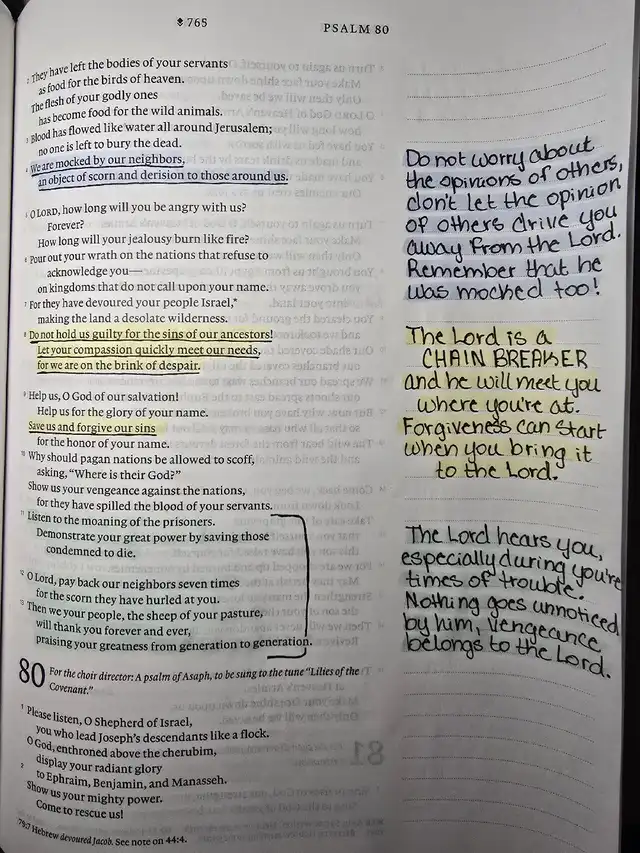 765
PSALM 80
2 They have left the bodies of your servants
as food for the birds of heaven.
The flesh of your godly ones
has become food for the wild animals.
3 Blood has flowed like water all around Jerusalem;
no one is left to bury the dead.
4 We are mocked by our neighbors,
an object of scorn and derision to those around us.
5 O LORD, how long will you be angry with us?
Forever?
How long will your jealousy burn like fire?
6 Pour out your wrath on the nations that refuse to
acknowledge you—
on kingdoms that do not call upon your name.
7 For they have devoured your people Israel,*
making the land a desolate wilderness.
8 Do not hold us guilty for the sins of our ancestors!
Let your compassion quickly meet our needs,
for we are on the brink of despair.
9 Help us, O God of our salvation!
Help us for the glory of your name.
Save us and forgive our sins
for the honor of your name.
10 Why should pagan nations be allowed to scoff,
asking, “Where is their God?”
Show us your vengeance against the nations,
for they have spilled the blood of your servants.
11 Listen to the moaning of the prisoners.
Demonstrate your great power by saving those
condemned to die.
12 O Lord, pay back our neighbors seven times
for the scorn they have hurled at you.
13 Then we your people, the sheep of your pasture,
will thank you forever and ever,
praising your greatness from generation to generation.
80 For the choir director: A psalm of Asaph, to be sung to the tune “Lilies of the
Covenant.”
1 Please listen, O Shepherd of Israel,
you who lead Joseph’s descendants like a flock.
O God, enthroned above the cherubim,
display your radiant glory
2 to Ephraim, Benjamin, and Manasseh.
Show us your mighty power.
Come to rescue us!
79:7 Hebrew devoured Jacob. See note on 44:4.
Do not worry about
the opinions of others,
don't let the opinion
of others drive you
away from the Lord.
Remember that he
was mocked too!
The Lord is a
CHAIN BREAKER
and he will meet you
where you're at.
Forgiveness can start
when you bring it
to the Lord.
The Lord hears you,
especially during you're
times of trouble.
Nothing goes unnoticed
by him, vengeance
belongs to the Lord.